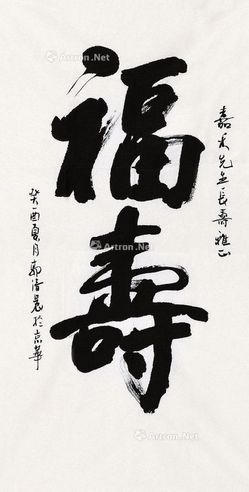 嘉木先生長壽雅正
福壽
癸酉夏月郭清晨於京華
Artron.Net
Artron.Net
Artron.Net